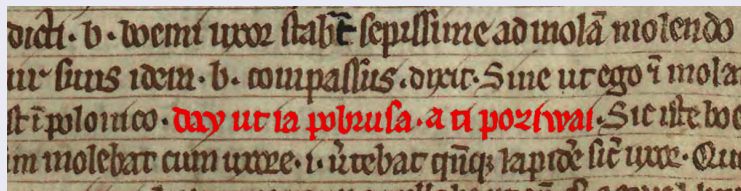 dicti · b · boemi uxor stabat sepissime ad molam molendo
ur suus idem · b · compassus · dixit · Sine ut ego i mola
st i polonico · day ut ia pobrusa · a ti poziwai · Sic iste boe
im molebat cum uxore · i · vertebat lapidem sic uxor · Qu